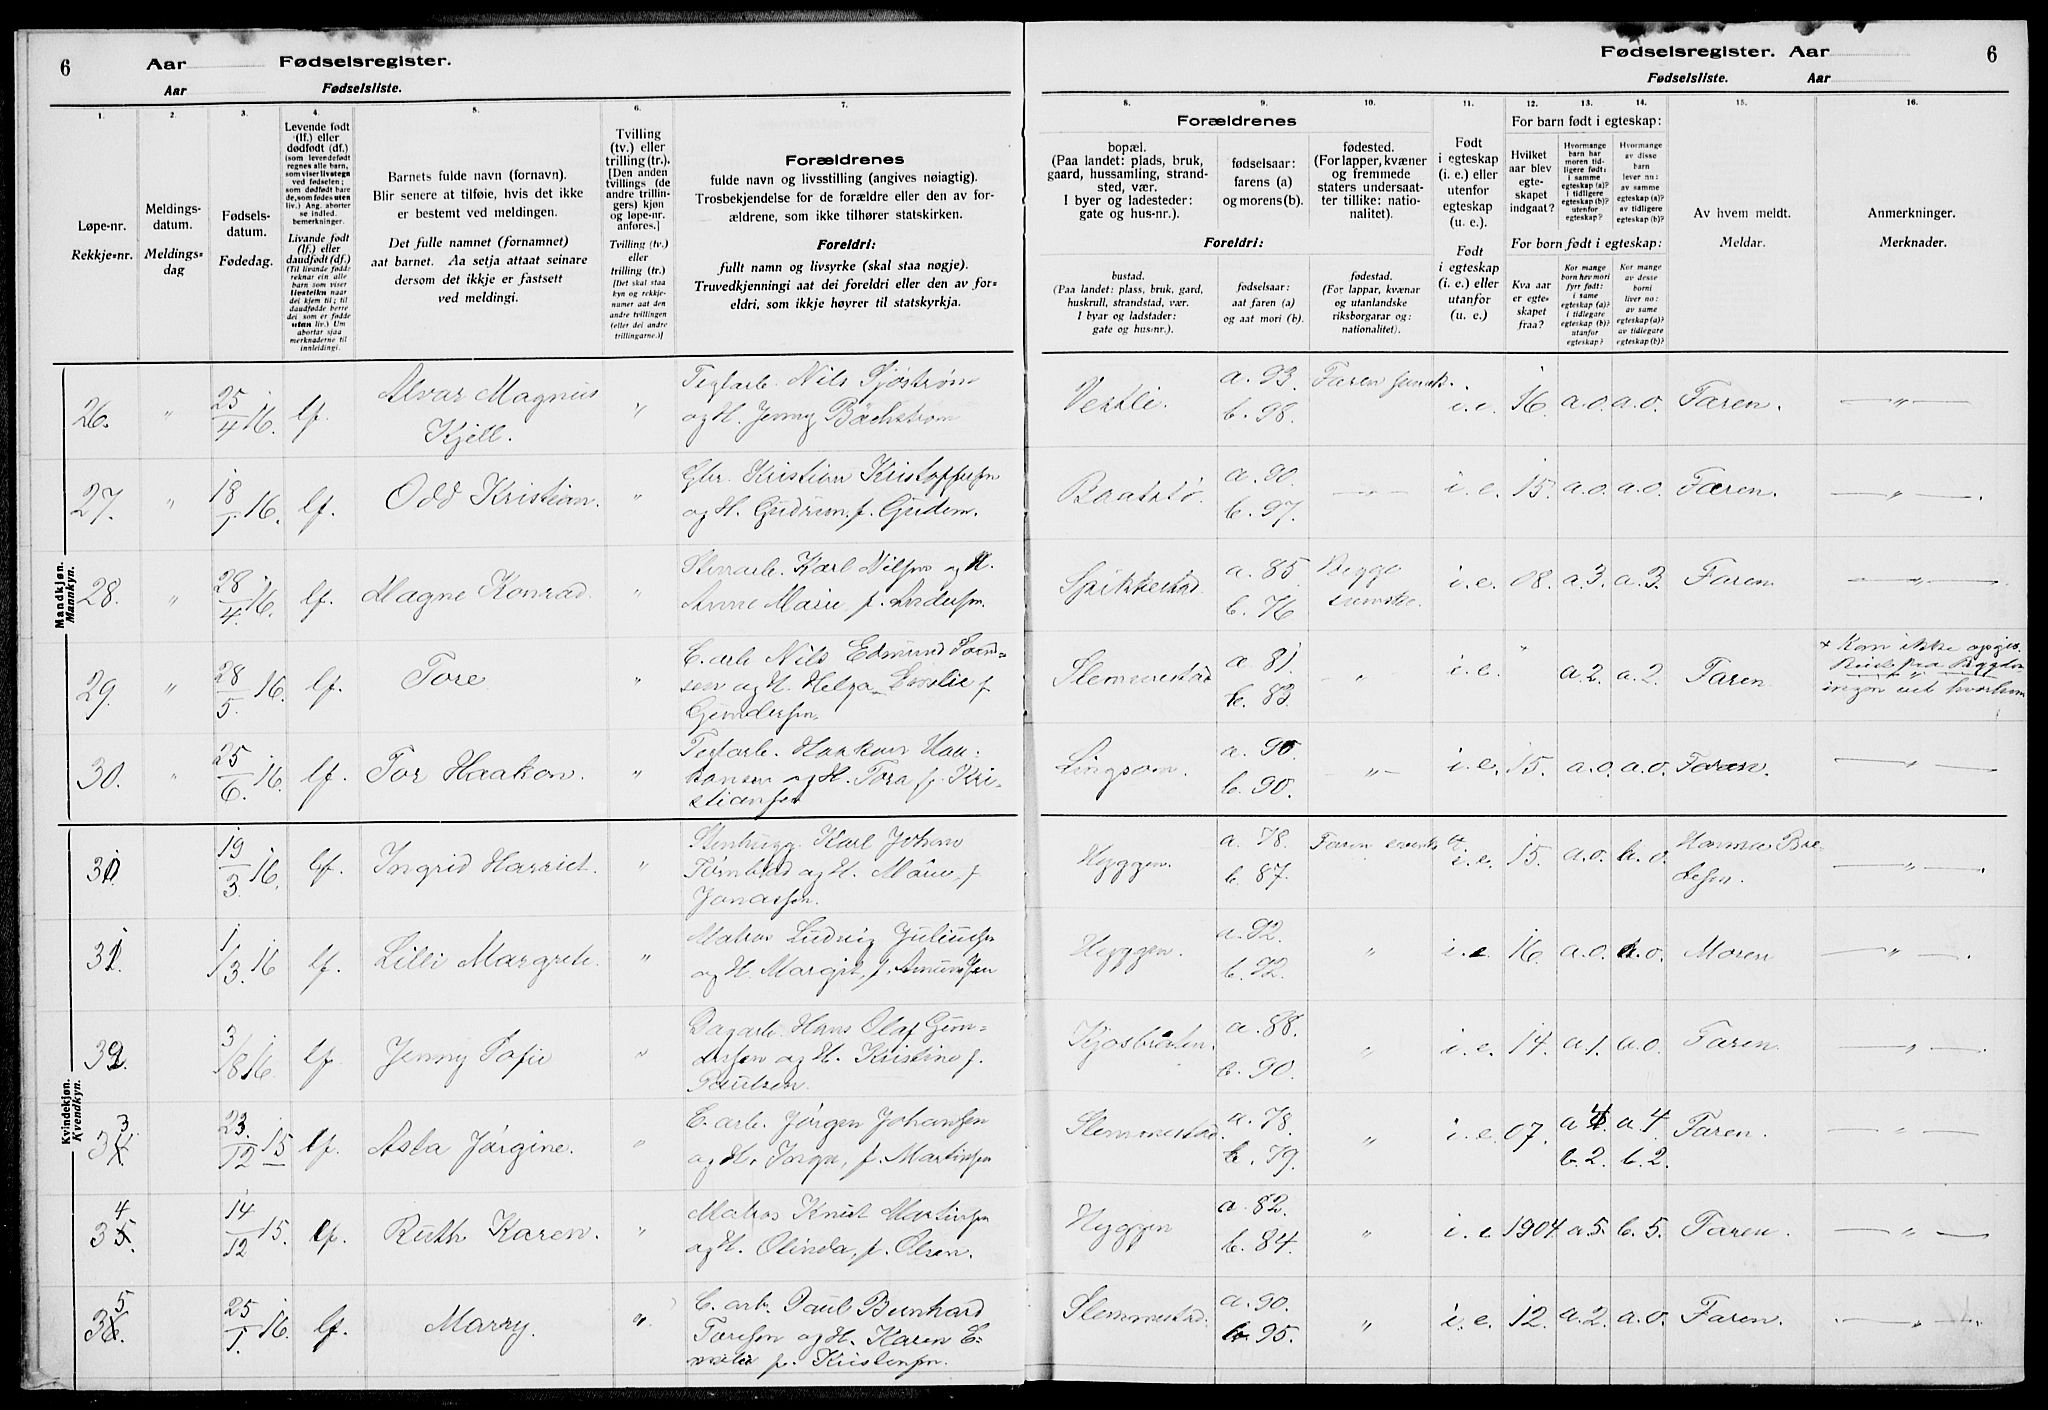 6 Aar Fødselsregister.
Aar Fødselsliste.
Fødselsregister. Aar 6
Fødselsliste. Aar
1. 2. 3. 4. 5. 6. 7.
Løpe-nr.
Rekkje-nr.
Meldings-
datum.
Meldings-
dag
Fødsels-
datum.
Fødedag.
Levende født
(lf.) eller
dødfødt (df.)
(som levendefødt
regnes alle barn,
som viser livstegn
ved fødselen;
som dødfødt bare
de, som fødes uten
liv.) Ang. abortei
se indled.
bemerkninger.
Livande født
(lf.) eller
daudfødt (df.)
(Til livande fødde
reknar ein alle
barn som viser
livsteikn naar
dei kjem til; til
daudfødde berre
dei som er fødde
utan liv.) Um
abortar sjaa
merknaderne til
innleidingi.
Barnets fulde navn (fornavn).
Blir senere at tilføie, hvis det ikke
er bestemt ved meldingen.
Det fulle namnet (fornamnet)
aat barnet. Aa setja attaat seinare
dersom det ikkje er fastsett
ved meldingi.
Tvilling
(tv.) eller
trilling (tr.).
[Den anden
tvillings (de
andre trillin-
gers) kjøn
og løpe-nr.
anføres.]
Tvilling (tv.)
eller
trilling (tr.)
[Det skal staa
kyn og rekkje-
numer aat den
andre tvillingen
(eller dei andre
trillingarne.)]
Forældrenes
fulde navn og livsstilling (angives nøiagtig).
Trosbekjendelse for de forældre eller den av for-
ældrene, som ikke tilhører statskirken.
Foreldri:
fullt namn og livsyrke (skal staa nøgje).
Truvedkjenningi aat dei foreldri eller den av for-
eldri, som ikkje høyrer til statskyrkja.
8. 9. 10. 11. 12. 13. 14. 15. 16.
Forældrenes
bopæl.
(Paa landet: plads, bruk,
gaard, hussamling, strand-
sted, vær.
I byer og ladesteder:
gate og hus-nr.).
fødselsaar:
farens (a)
og morens (b).
fødested.
(For lapper, kvæner
og fremmede
staters undersaat-
ter tillike: natio-
nalitet).
Foreldri:
bustad.
(Paa landet: plass, bruk, gard,
huskrull, strandstad, vær.
I byar og ladstader:
gate og hus-nr.).
fødselsaar:
aat faren (a)
og aat mori (b).
fødestad.
(For lappar, kvænar
og utanlandske
riksborgarar og:
nationalitet).
Født
i egteskap
(i. e.) eller
utenfor
egteskap
(u. e.).
Født
i egteskap
(i. e.) eller
utanfor
(u. e.)
For barn født i egteskap:
Hvilket
aar blev
egte-
skapet
indgaat?
Hvormange
barn har
moren tid-
ligere født:
i samme
egteskap (a)?
i tidligere
egteskap (b)?
utenfor
egteskap?
Hvormange
av disse
barn
lever nu:
av samme
egteskap (a)?
av tidligere
egteskap (b)?
For born født i egteskap:
Kva aar
er egte-
skapet
fraa?
Kor mange
born hev mori
fyrr født:
i same
egteskap (a)?
i tidlegare
egteskap (b)?
utanfor
egteskap?
Kor mange
av desse
borni
liver no:
av same
egteskap (a)?
av tidlegare
egteskap (b)?
Av hvem meldt.
Meldar.
Anmerkninger.
Merknader.
Mandkjøn.
Mannkyn.
26. " 25/4 16. lf. Alvar Magnus Kjell. " Teglarb. Nils Sjøstrøm og H. Jenny Bäckstrøm
Vestli. a. 93. b. 98. Faren svensk. i.e. 16. a.o. a.o. Faren. — " —
27. " 18/1 16. lf. Odd Kristian. " Gbr. Kristian Kristoffersen og H. Gudrun, f. Gudem.
Baatstø a. 90. b. 97. —"— i.e. 15. a.o. a.o. Faren. — " —
28. " 28/4 16. lf. Magne Konrad. " Stenarb. Karl Nilsen og H. Anne Marie f. Andersen.
Spikkestad a. 85. b. 76. Begge svenske. i.e. 08. a.3. a.3. Faren. — " —
29. " 28/5 16. lf. Tore " C. arb. Nils Edmund og H. Helga f. Gundersen.
Slemmestad a. 81. b. 83. " i.e. " a.2. a.2. Faren. + Kan ikke opgis.
30. " 25/6 16. lf. Tor Haakon. " Teglarb. Haakon og H. Tora f. Kristiansen
Lingsom. a. 90. b. 90. —"— i.e. 15. a.o. a.o. Faren. — " —
Kvindekjøn.
Kvendkyn.
31. 19/3 16. lf. Ingrid Harriet. " Stenhugg. Karl Johan Törnblad og H. Marie, f. Jonassen.
Hyggen. a. 78. b. 87. Faren svensk i.e. 15. a.o. b.o. Hanna — " —
31. 1/3 16 lf. Lilli Margrete. " Matros Ludvig Juliussen og H. Margit, f. Amundsen
Hyggen. a. 92. b. 92. " i.e. 16. a.o. a.o. Moren — " —
32. 3/8 16. lf. Jenny Sofie " Dagarb. Hans Olaf Gundersen og H. Kristine f. Paulsen.
Kjosbraaten. a. 88. b. 90. " i.e. 14. a.1. a.o. Faren. — " —
33. 23/12 15 lf. Asta Jørgine. " C. arb. Jørgen Johansen og H. Inga, f. Martinsen
Slemmestad. a. 78. b. 79. " i.e. 07. a.4 b.2. a.4 b.2. Faren. — " —
34. 14/12 15. lf. Ruth Karen. " Matros Knut Martinsen og H. Olinda, f. Olsen.
Hyggen a. 82. b. 84. " i.e. 1904. a.5. b.5. Faren. — " —
35. 25/1 16. lf. Marry. " C. arb. Paul Bernhard og H. Karen Emilie f. Kristensen.
Slemmestad. a. 90. b. 95. " i.e. 12. a.2. a.o. Faren. — " —